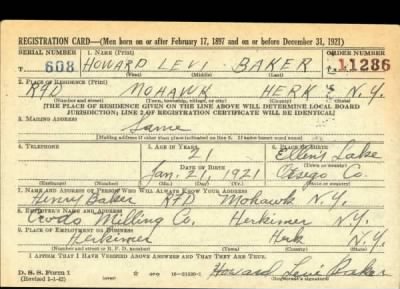 REGISTRATION CARD—(Men born on or after February 17, 1897 and on or before December 31, 1921)
SERIAL NUMBER 1. NAME (Print) ORDER NUMBER
T 608 HOWARD LEVI BAKER 11286
(First) (Middle) (Last)
2. PLACE OF RESIDENCE (Print)
RFD MOHAWK HERK N.Y.
(Number and street) (Town, township, village, or city) (County) (State)
[THE PLACE OF RESIDENCE GIVEN ON THE LINE ABOVE WILL DETERMINE LOCAL BOARD
JURISDICTION; LINE 2 OF REGISTRATION CERTIFICATE WILL BE IDENTICAL]
3. MAILING ADDRESS
Same
[Mailing address if other than place indicated on line 2. If same insert word same]
4. TELEPHONE 5. AGE IN YEARS 6. PLACE OF BIRTH
21
DATE OF BIRTH
Lake
Jan. 21, 1921 Otsego Co.
(Exchange) (Number) (Mo.) (Day) (Yr.) (State or country)
7. NAME AND ADDRESS OF PERSON WHO WILL ALWAYS KNOW YOUR ADDRESS
Henry Baker RFD Mohawk N.Y.
8. EMPLOYER'S NAME AND ADDRESS
Milling Co. Herkimer N.Y.
9. PLACE OF EMPLOYMENT OR BUSINESS
Herkimer Herk. N.Y.
(Number and street or R. F. D. number) (Town) (County) (State)
I AFFIRM THAT I HAVE VERIFIED ABOVE ANSWERS AND THAT THEY ARE TRUE.
D. S. S. Form 1
(Revised 1-1-42) (over) Howard Levi Baker
(Registrant's signature)